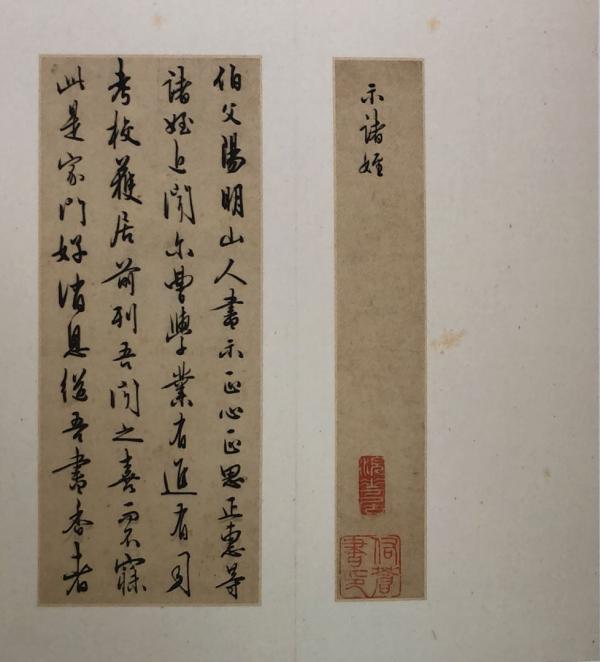 示諸姪
伯父陽明山人書示正心正思正惠等
諸姪近聞尔曹學業有進有司
考校獲居前列吾聞之喜而不寐
此是家門好消息継吾書香者